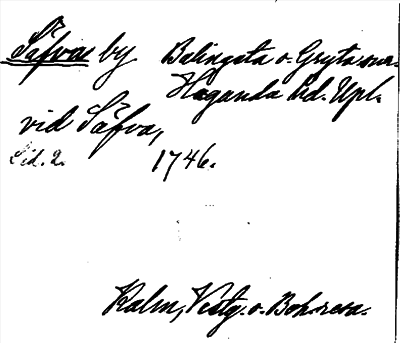 Säfva by Balingsta o. Gryta snr.
Haganda hd. Upl.
vid Säfva,
Sid. 2. 1746.
Kalm, Västg. o. Bohusresa.